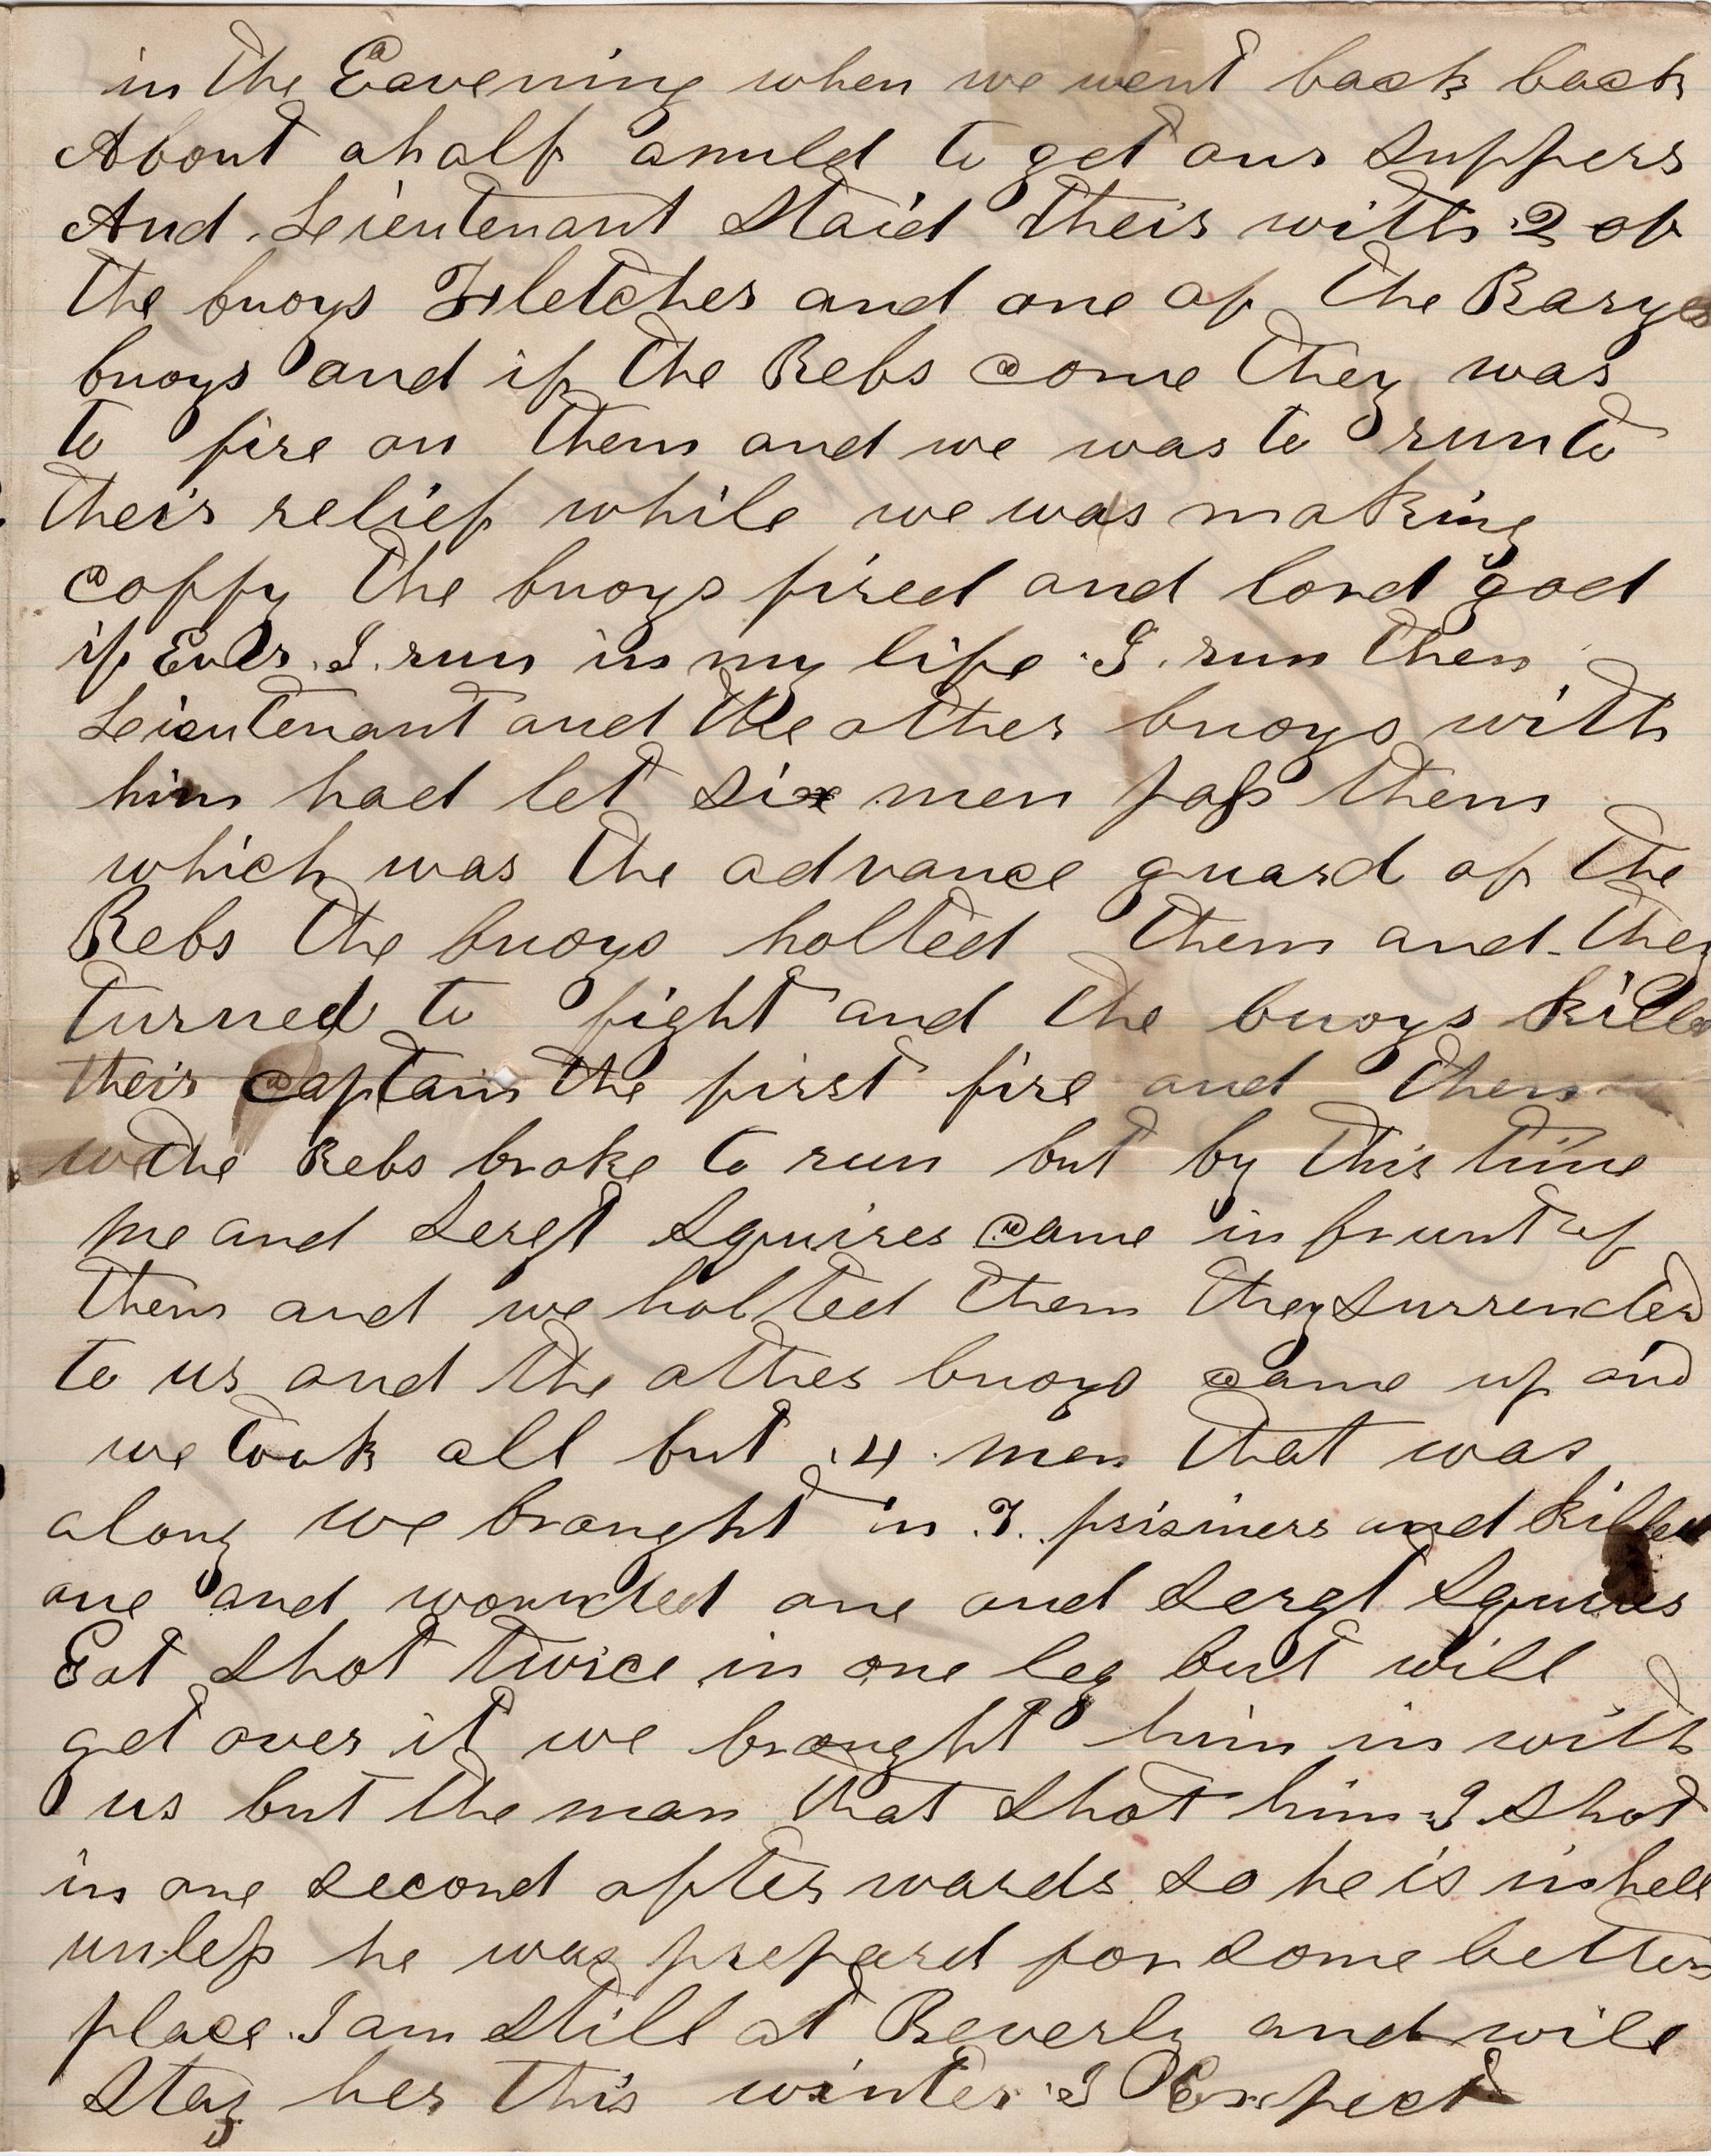 in the Eavening when we went back back
About ahalf amild to get our suppers
And Leieutenant Staid their with 2 of
the buoys Fletcher and one of the Barys
buoys and if the Rebs come they was
to fire on them and we was to run to
their relief while we was making
coffy the buoys fired and lord god
if Ever I run in my life I run then
Leieutenant and the other buoys with
him had let six men pass them
which was the advance guard of the
Rebs the buoys holted them and they
turned to fight and the buoys killed
their captain the first fire and then
the Rebs broke to run but by this time
me and Sergt Squires came in frunt of
them and we holted them they surrended
to us and the other buoys came up and
we took all but 4 men that was
along we braught in 7 prisiners and killed
one and wounded one and Sergt Squires
Gat shot twice in one leg but will
get over it we braught him in with
us but the man that shot him I shot
in one second after wards so he is in hell
unless he was prepard for some better
place I am still at Beverly and will
stay her this winter I Expect